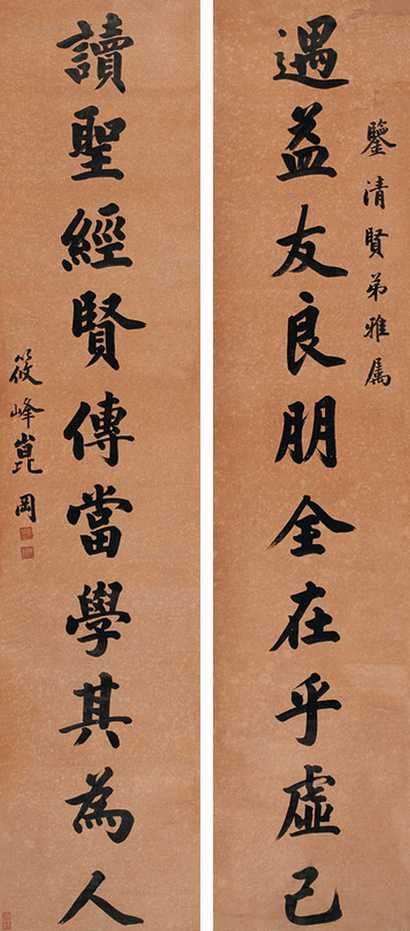 鑒清賢弟雅属
遇益友良朋全在乎虛己
讀聖經賢傳當學其為人
筱峰崑岡